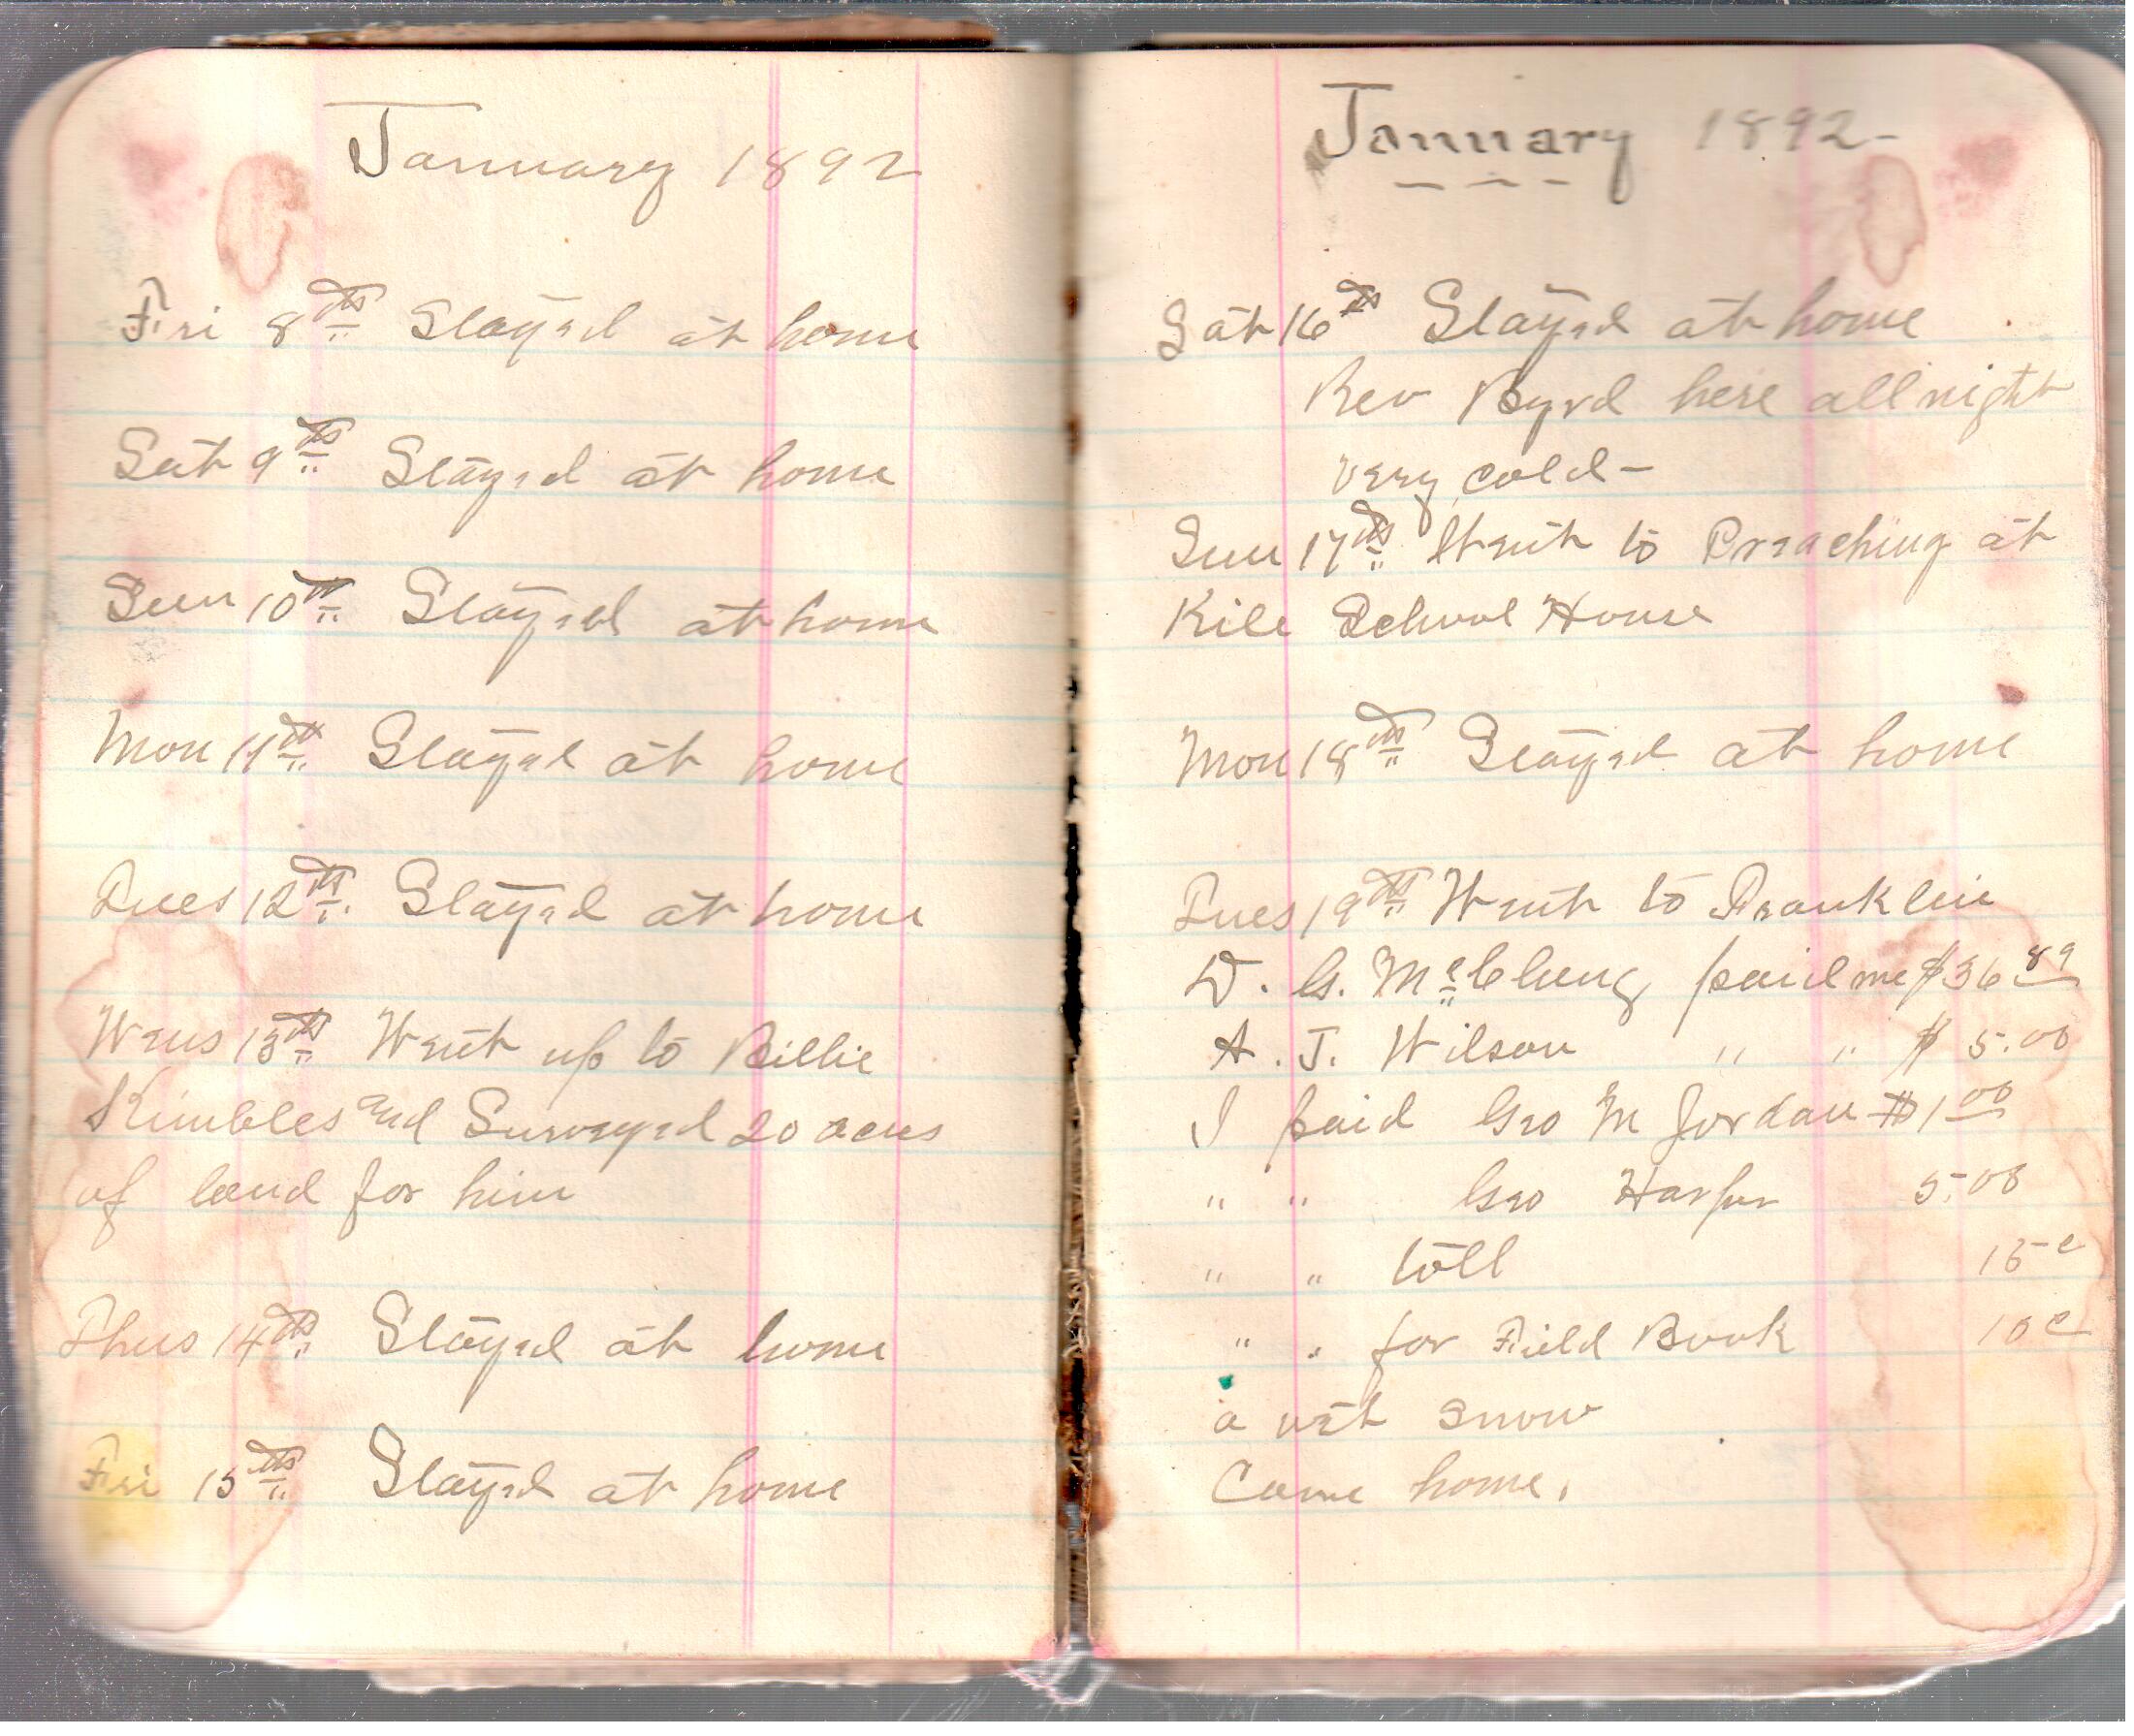 January 1892
Fri 8th Stayed at home
Sat 9th Stayed at home
Sun 10th Stayed at home
Mon 11th Stayed at home
Tues 12th. Stayed at home
Wens 13th Went up to Billie
Kimbles and Surveyed 20 acres
of land for him
Thus 14th Stayed at home
Fri 15th Stayed at home
January 1892-
Sat 16th Stayed at home
Rev Byrd here all night
very cold-
Sun 17th Went to Preaching at
Kile School House
Mon 18th Stayed at home
Tues 19th Went to Franklin
D. G. McClung paid me $36 89
A. J. Wilson " " $ 5.00
I paid Geo M Jordan $1 00
" " Geo Harper 5.00
" " toll 15c
" " for Field Book 10c
a wet snow
Came home.